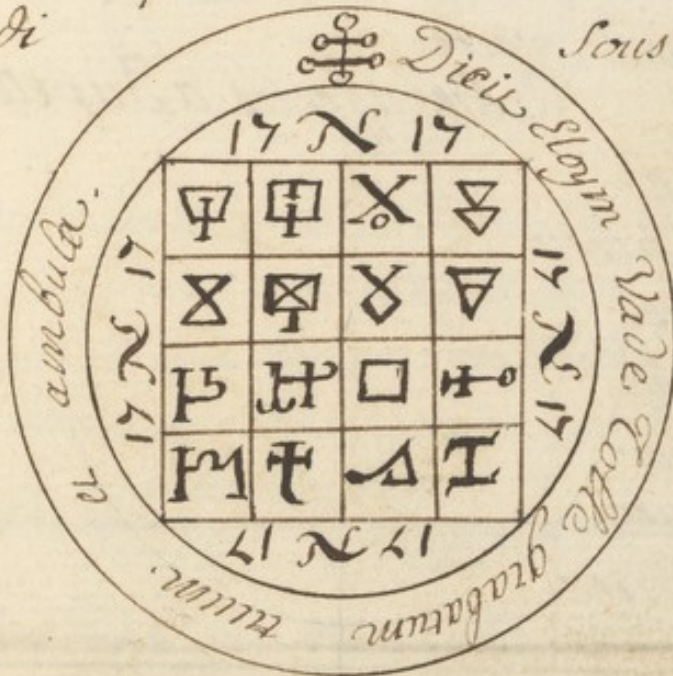 di
Sous
Dicis Eloym Vade Tolle grabatum tuum et ambula.
17 N 17
17 N 17
17 N 17
17 N 17